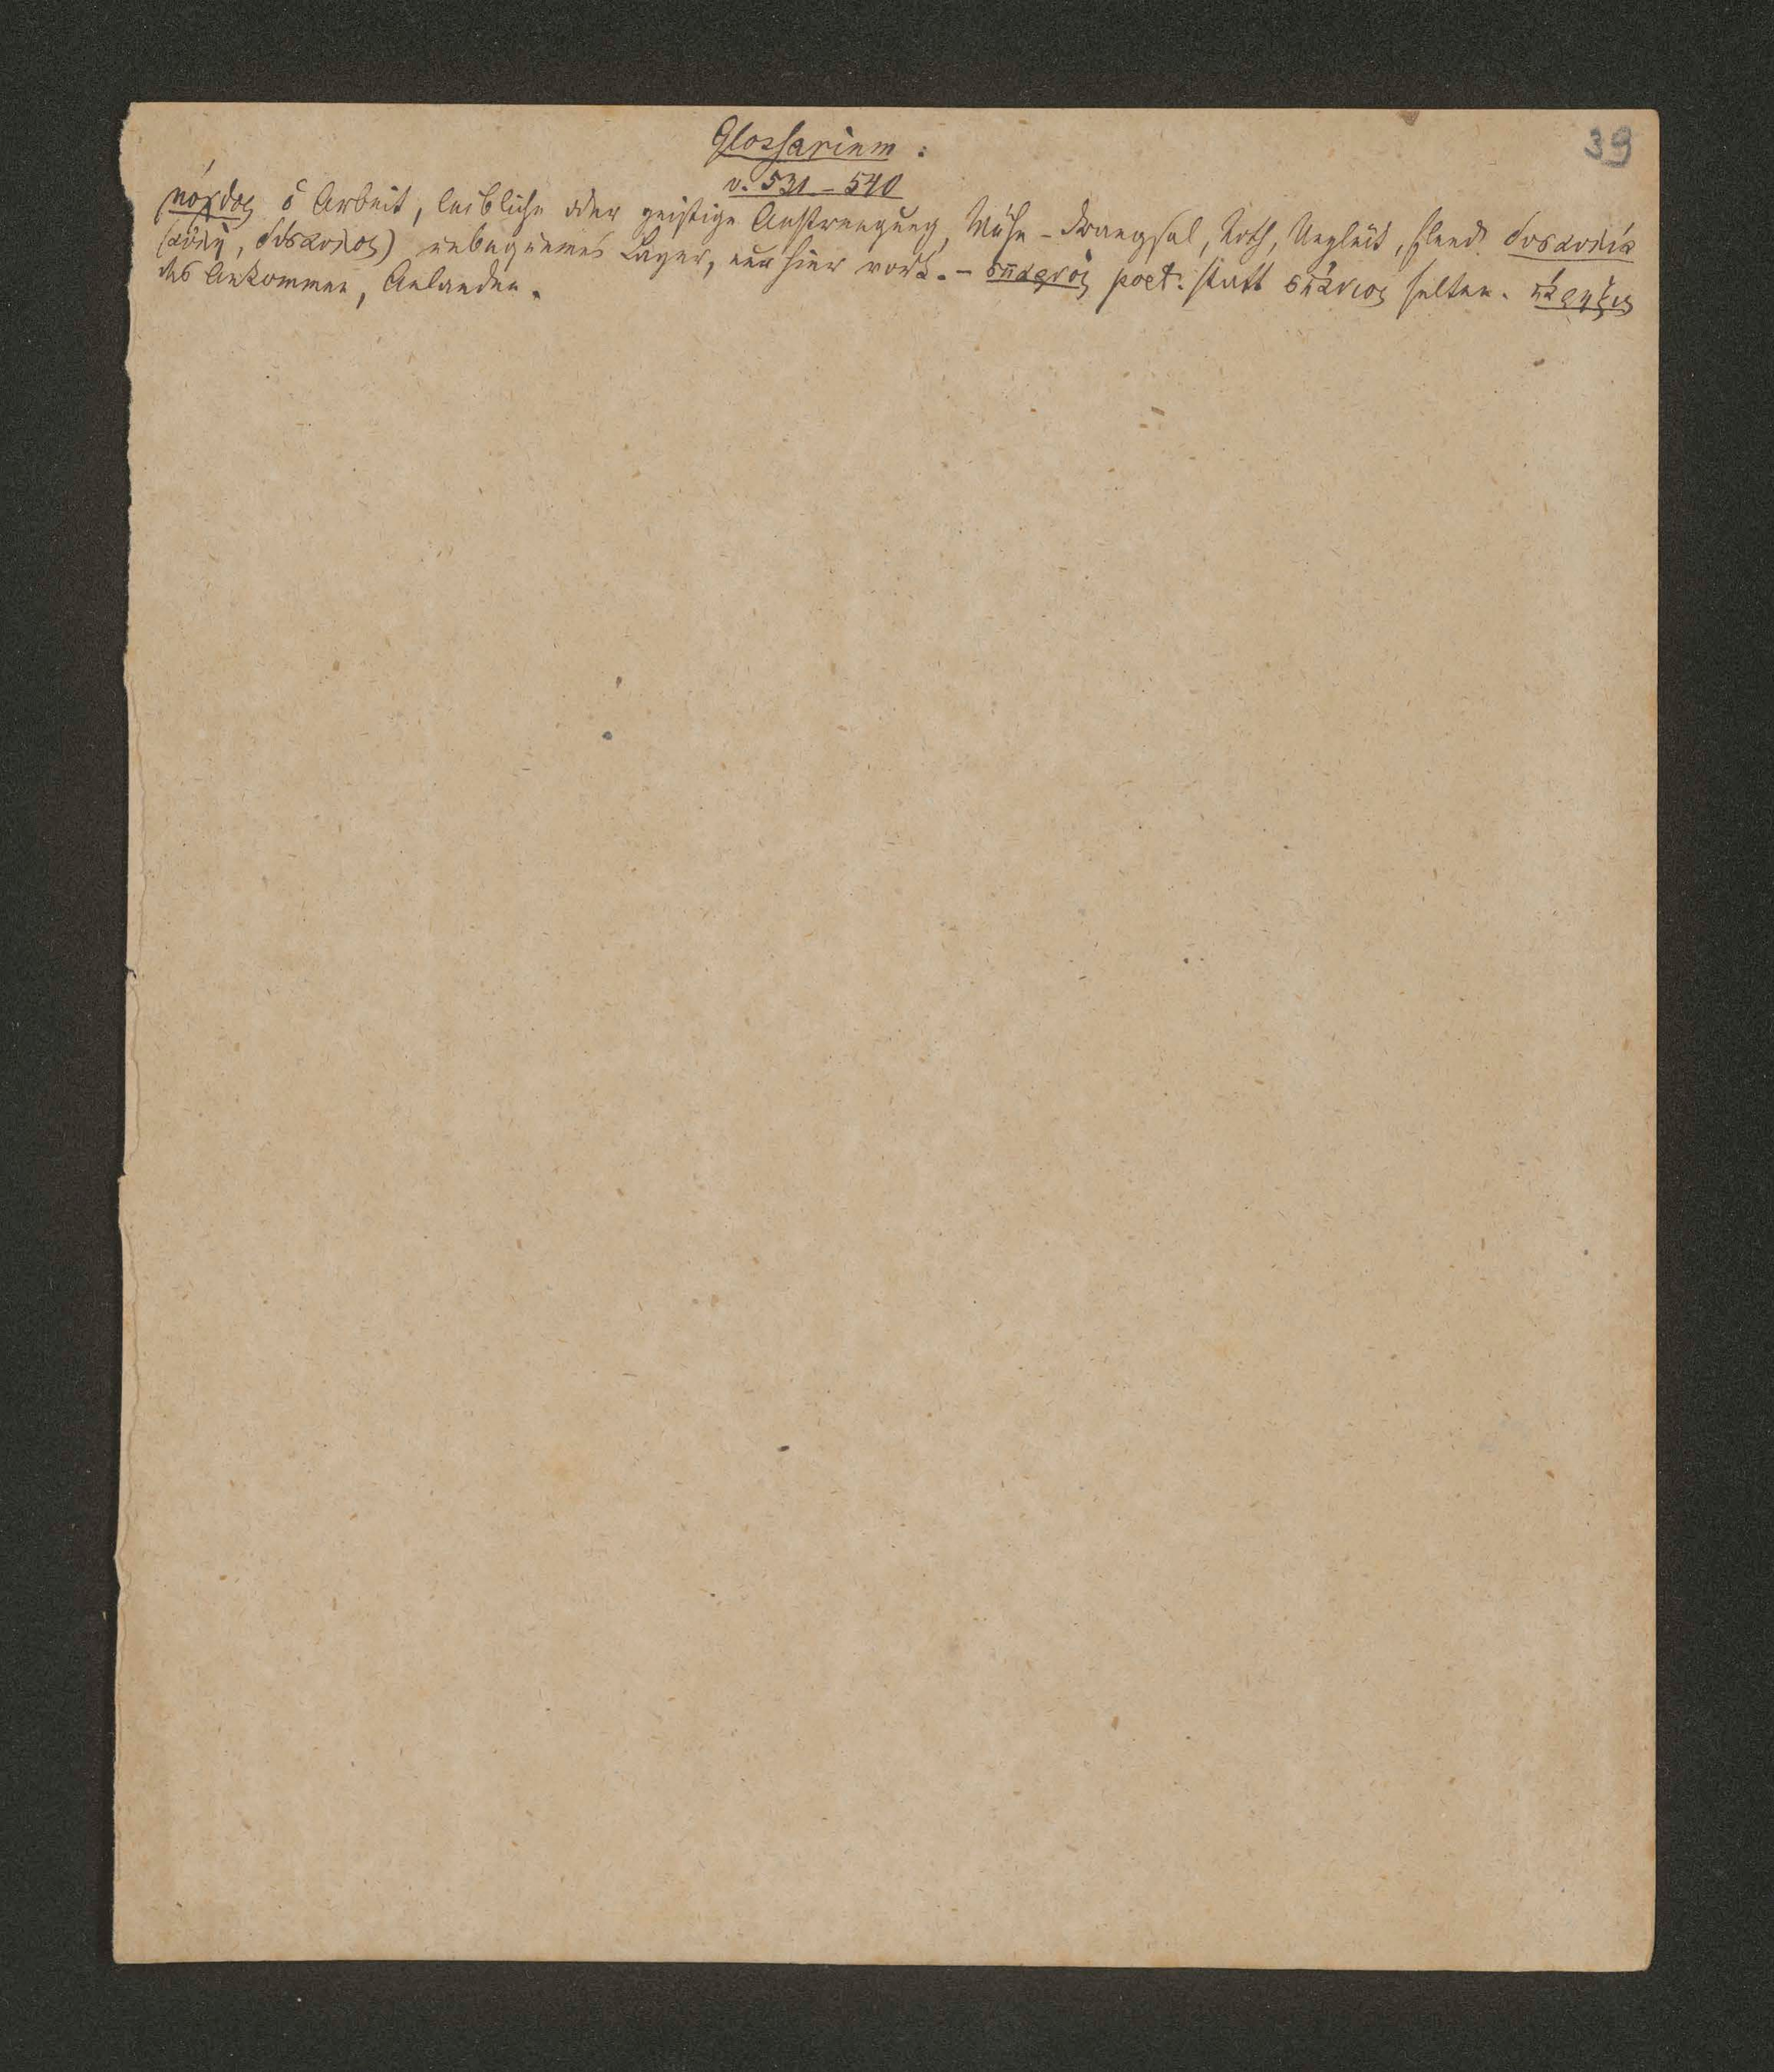 39
Glossarium :
v. 531 – 540
μόχθος ὁ Arbeit, leibliche oder geistige Anstrengung, Mühe – Drangsal, Noth, Unglück, Elend. δυσαυλία
(αὐλή, δύσαυλος) unbequemes Lager, nur hier vork. – σπαρνός poet. statt σπάνιος selten. πάρηξις
das Ankommen, Anlanden.